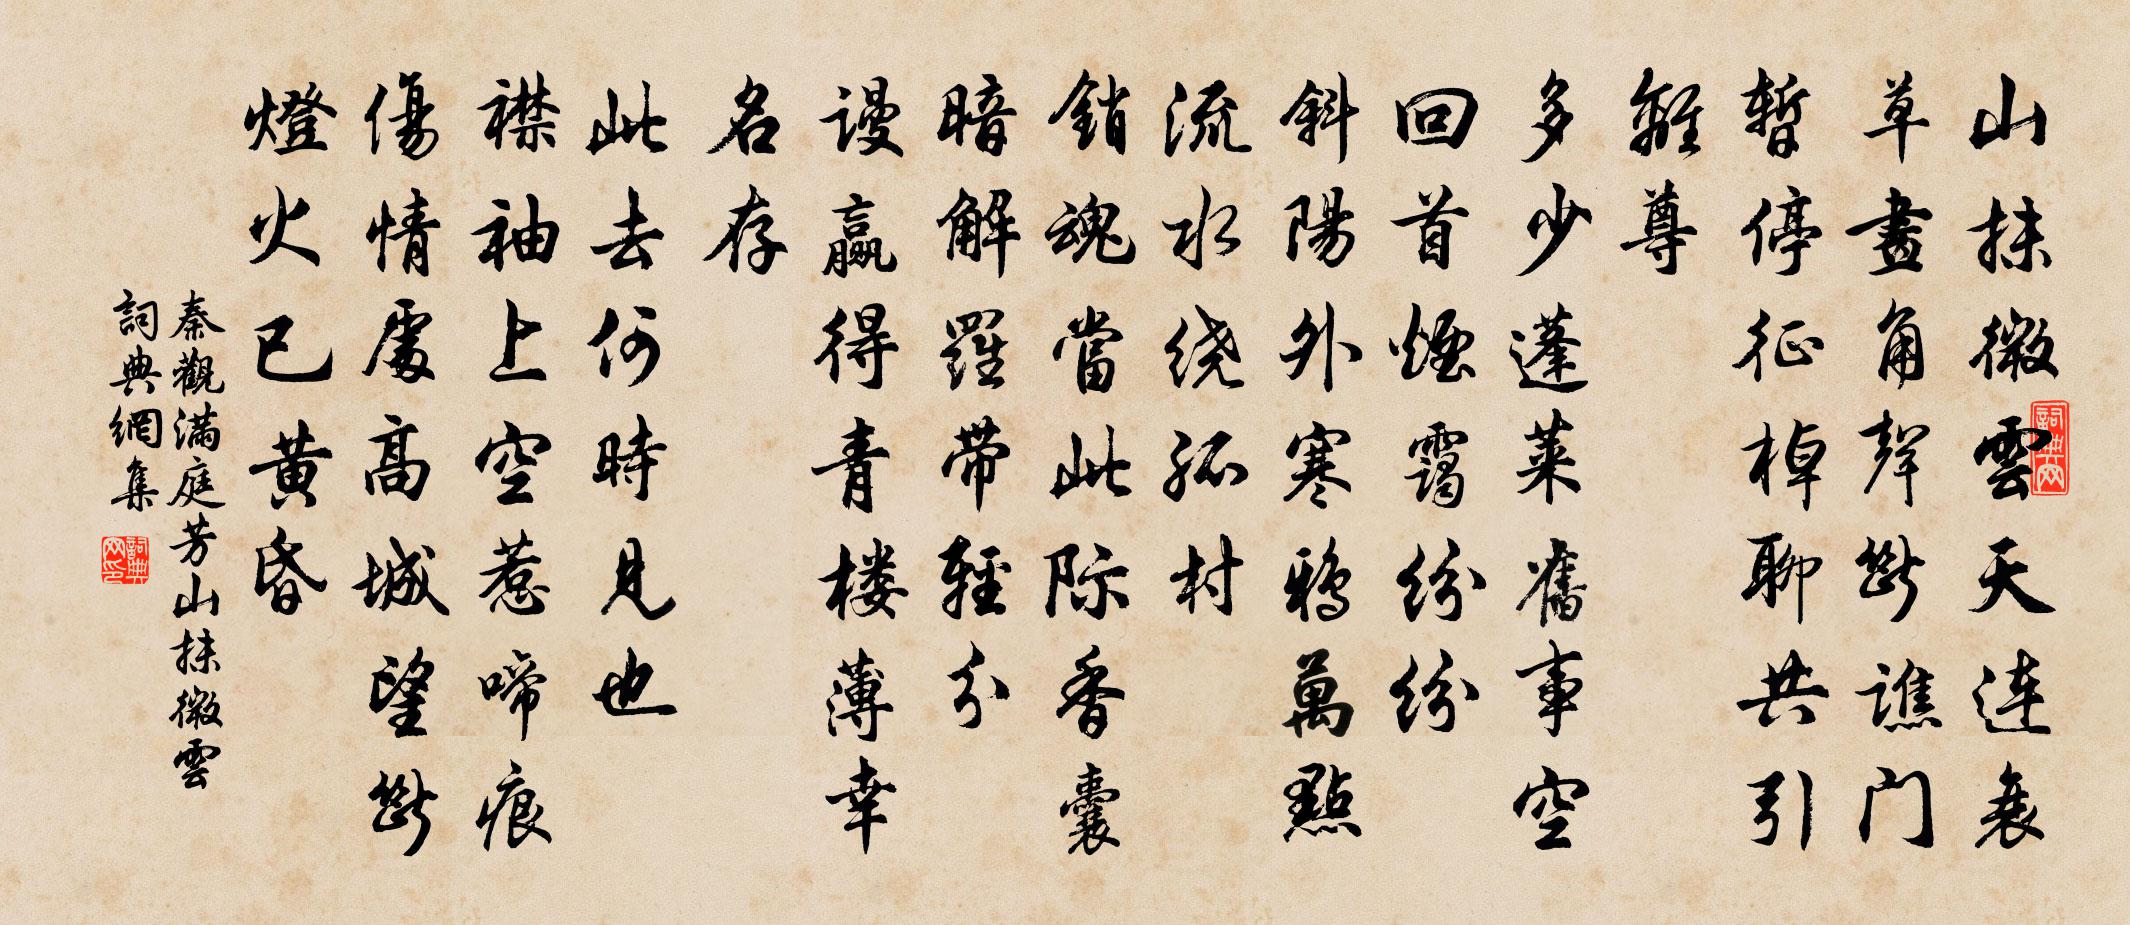 山抹微雲天連衰
草畫角聲斷譙门
暫停征棹聊共引
離尊
多少蓬萊舊事空
回首煙靄纷纷
斜陽外寒鸦萬點
流水绕孤村
銷魂當此际香囊
暗解羅带輕分
謾赢得青楼薄幸
名存
此去何時見也
襟袖上空惹啼痕
傷情處高城望斷
燈火已黄昏
秦觀滿庭芳山抹微雲
詞典網集
詞典网
詞典网印